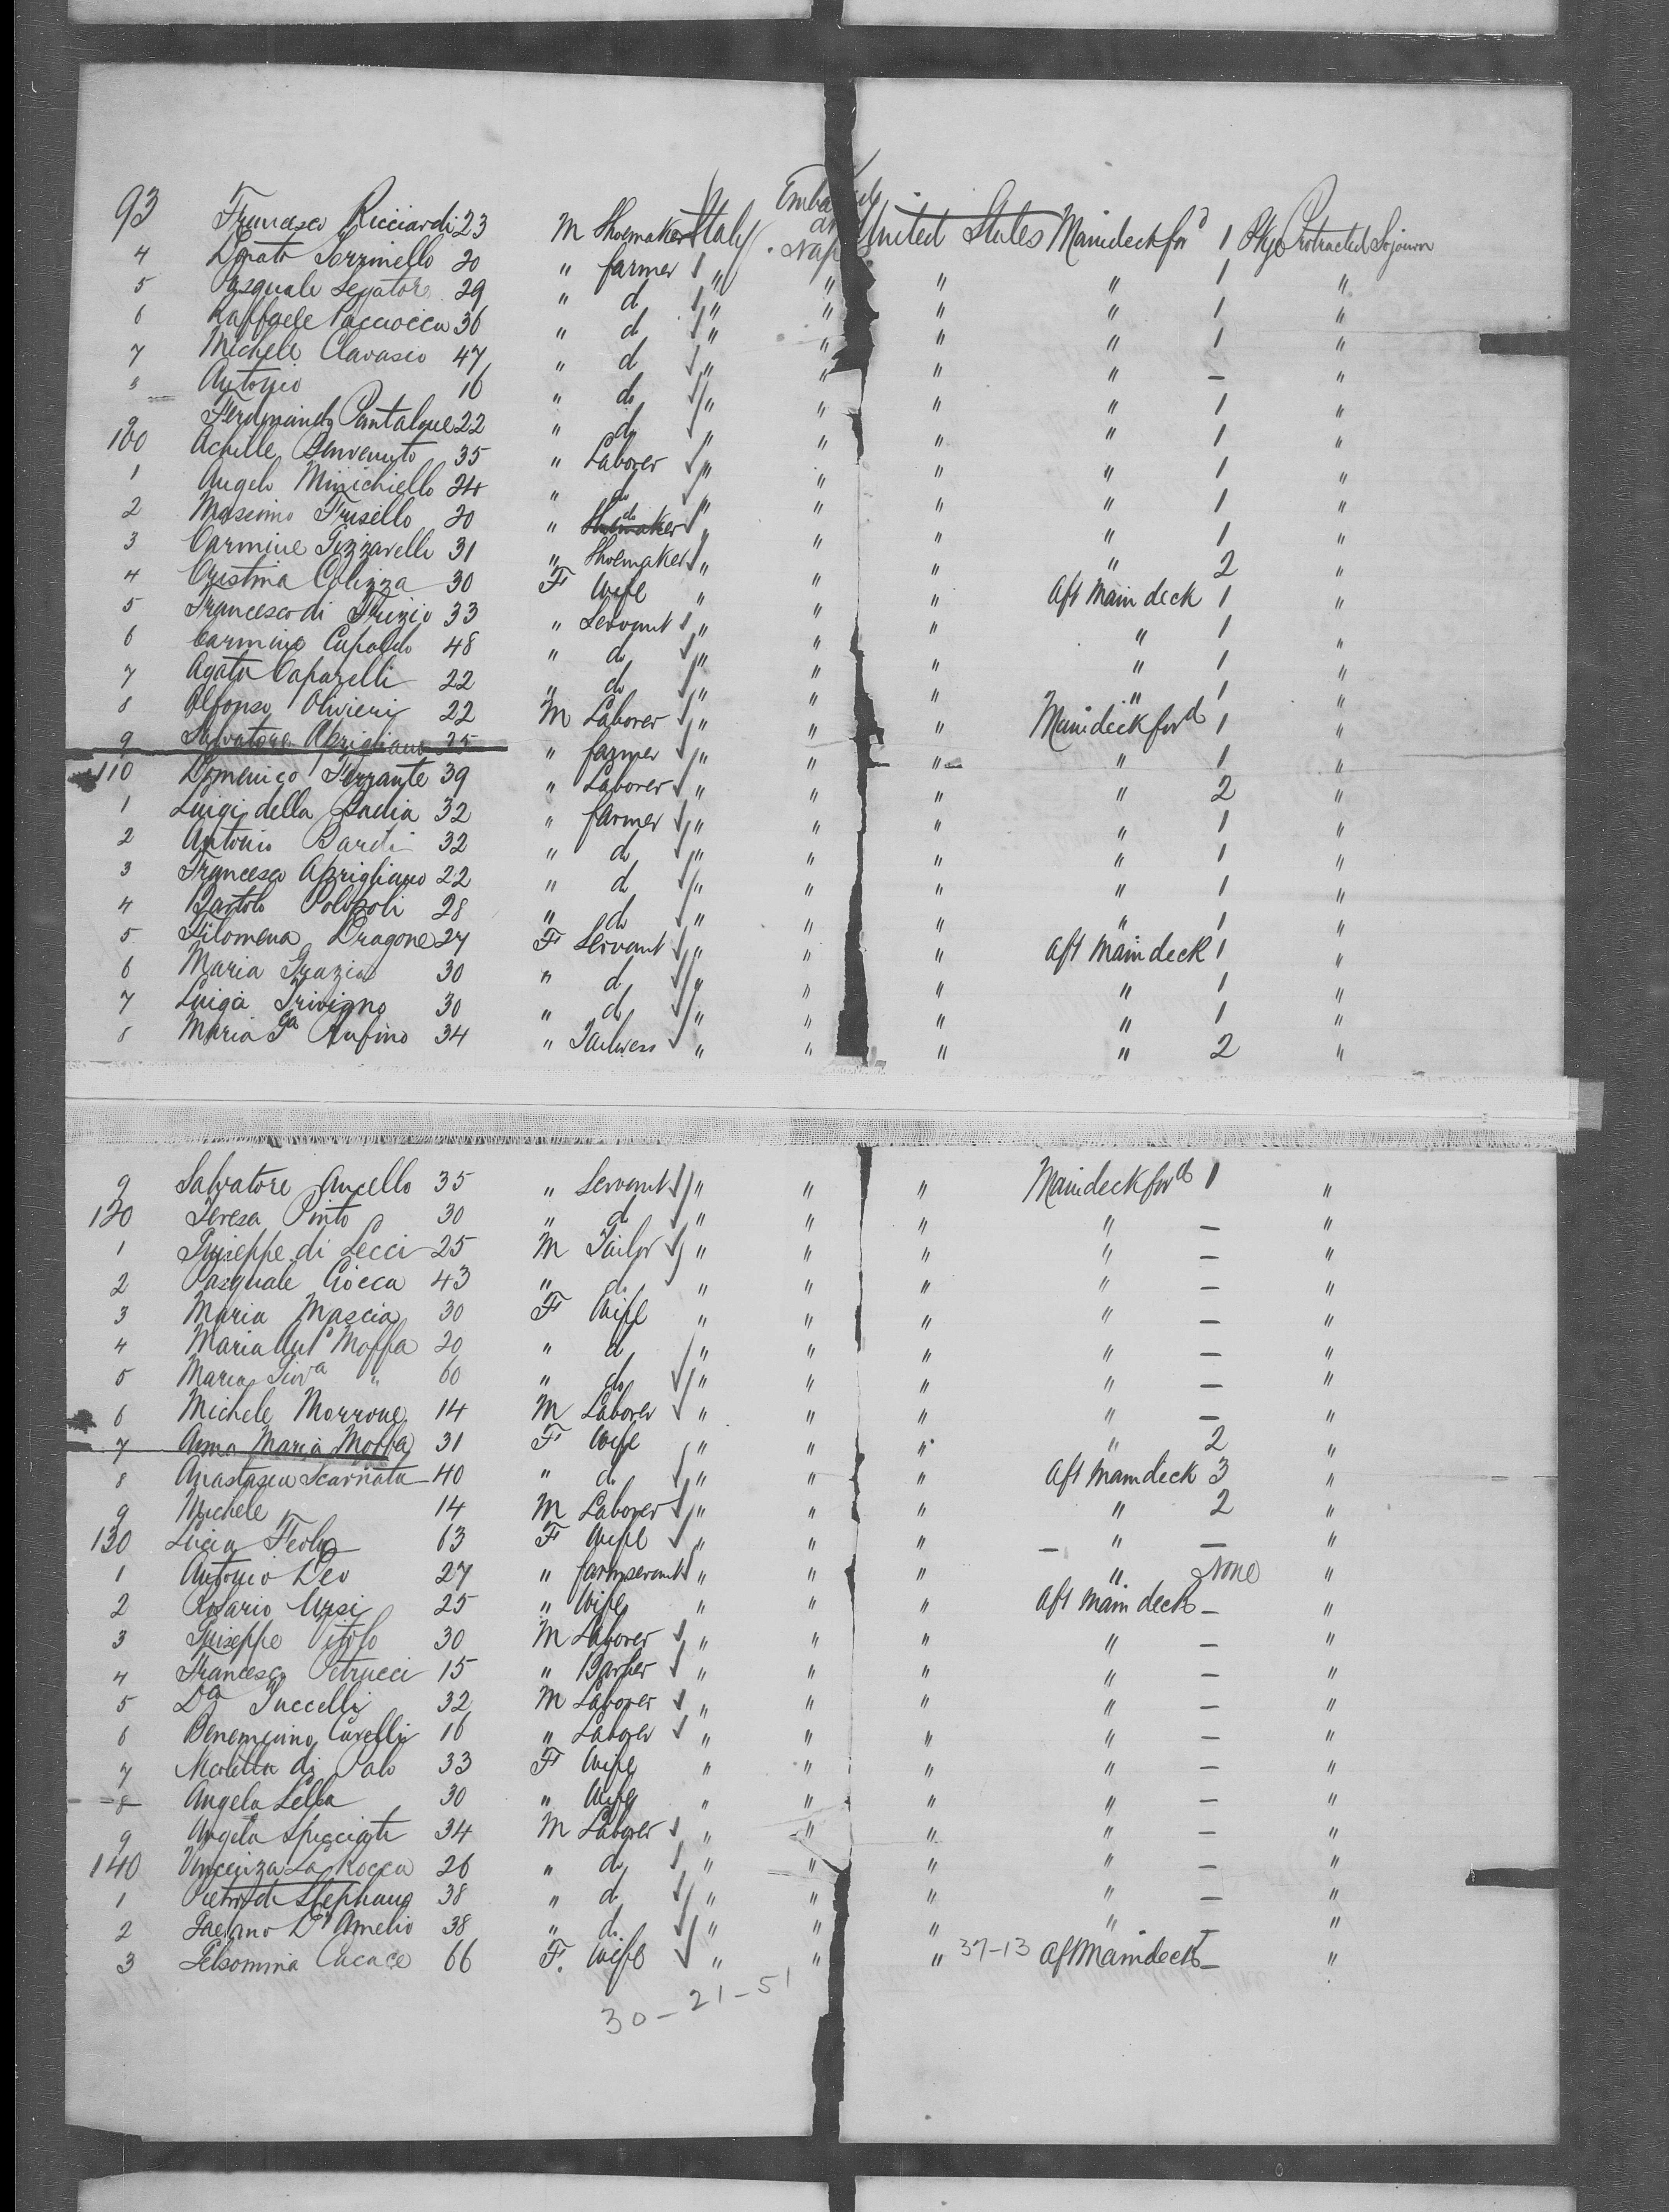 93 Francesco Ricciardi 23 M Shoemaker Italy United States Maindeck ford 1 Pkge Protracted Sojourn
4 Donato 20 " farmer " " " " 1 "
5 Pasquale 29 " do " " " " 1 "
6 Raffaele 36 " do " " " " 1 "
7 Michele Clavasio 47 " do " " " " 1 "
8 Antonio 16 " do " " " " — "
9 Ferdinando Pantalone 22 " do " " " " 1 "
100 Achille Benvenuto 35 " Laborer " " " " 1 "
1 Angelo Minichiello 24 " do " " " " 1 "
2 Massimo Frisello 20 " do " " " " 1 "
3 Carmine 31 " Shoemaker " " " " 2 "
4 Cristina Colizza 30 F Wife " " " Aft Main deck 1 "
5 Francesco di 33 " Servant " " " " 1 "
6 Carmine Capaldo 48 " do " " " " 1 "
7 Agata Caparelli 22 " do " " " " 1 "
8 Alfonso Olivieri 22 M Laborer " " " Maindeck ford 1 "
9 Salvatore Aprigliano 25 " farmer " " " " 1 "
110 Domenico Ferrante 39 " Laborer " " " " 2 "
1 Luigi della 32 " farmer " " " " 1 "
2 Antonio Bardi 32 " do " " " " 1 "
3 Francesco Aprigliano 22 " do " " " " 1 "
4 Bartolo 28 " do " " " " 1 "
5 Filomena Dragone 27 F Servant " " " Aft Main deck 1 "
6 Maria Grazia 30 " do " " " " 1 "
7 Luigia Trivigno 30 " do " " " " 1 "
8 Maria Rufino 34 " Tailoress " " " " 2 "
9 Salvatore Aucello 35 " Servant " " " Maindeck ford 1 "
120 Teresa Pinto 30 " do " " " " — "
1 Giuseppe di Lecci 25 M Tailor " " " " — "
2 Pasquale Ciocca 43 " do " " " " — "
3 Maria Mascia 30 F Wife " " " " — "
4 Maria Anta Moffa 20 " do " " " " — "
5 Maria Giova " 60 " do " " " " — "
6 Michele Morrone 14 M Laborer " " " " — "
7 Anna Maria Moffa 31 F Wife " " " " 2 "
8 Anastasia Scarnata 40 " do " " " Aft Main deck 3 "
9 Michele 14 M Laborer " " " " 2 "
130 Lucia Feola 63 F Wife " " " — " — "
1 Antonio Leo 27 " farmservant " " " " None "
2 Rosario Ursi 25 " Wife " " " Aft Main deck — "
3 Giuseppe Vitolo 30 M Laborer " " " " — "
4 Francesco Petrucci 15 " Barber " " " " — "
5 Da Tuccelli 32 M Laborer " " " " — "
6 Carelli 16 " Laborer " " " " — "
7 di Palo 33 F Wife " " " " — "
8 Angela Lella 30 " Wife " " " " — "
9 Angelo 34 M Laborer " " " " — "
140 Vincenza La Rocca 26 " do " " " " — "
1 Pietro di Stephano 38 " do " " " " — "
2 Gaetano D'Amelio 38 " do " " " " — "
3 Gelsomina Cacace 66 F. Wife " " " 37-13 Aft Maindeck — "
30-21-51